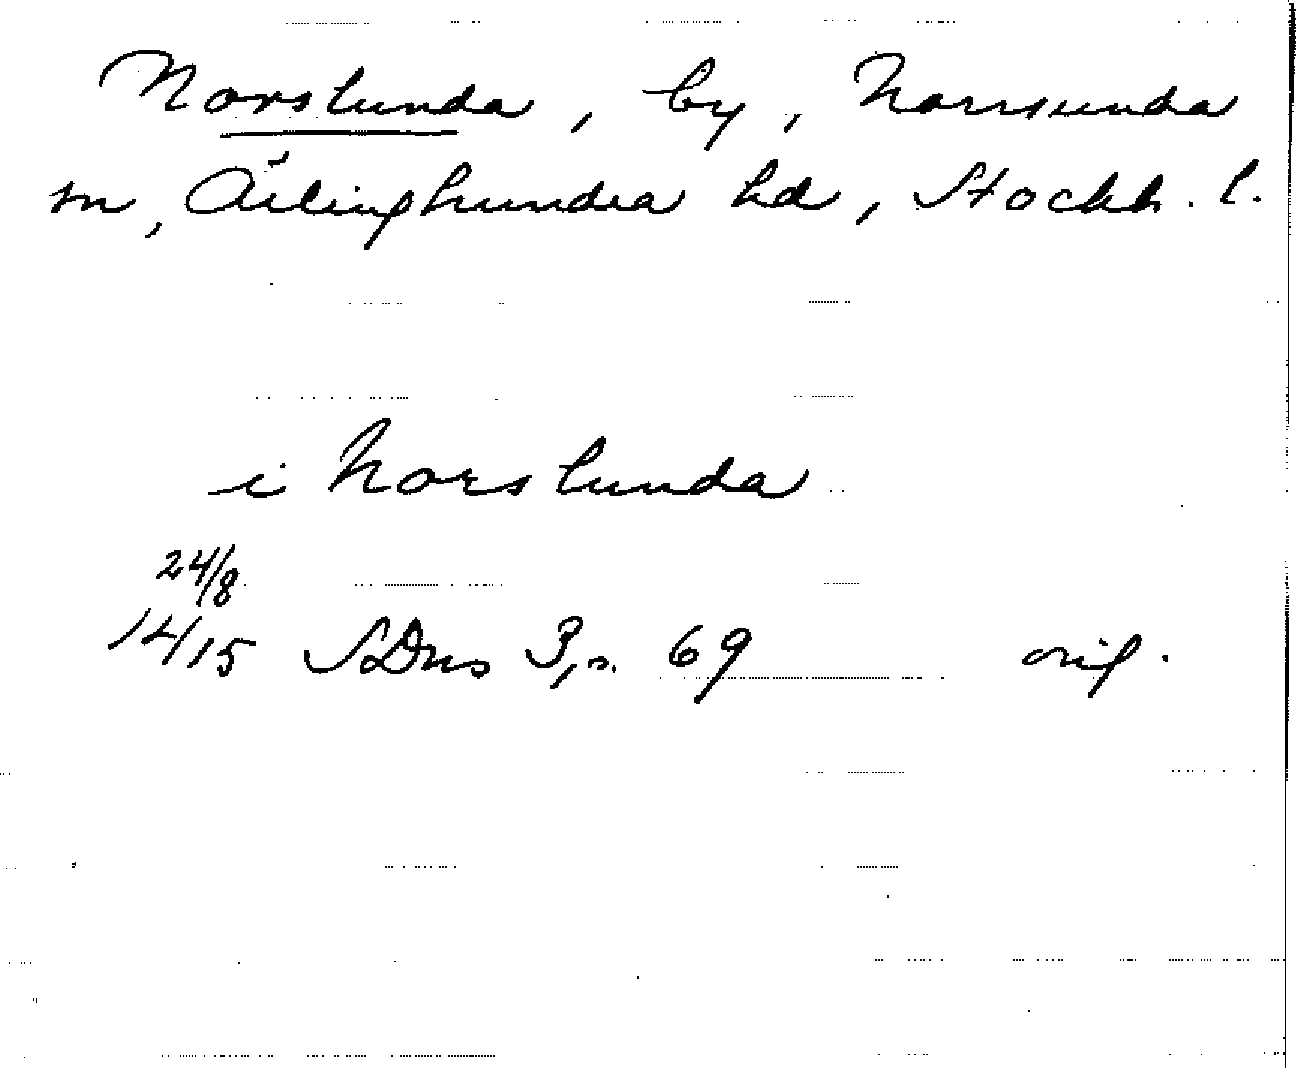 Norslunda, by, Norrsunda
sn, Ärlinghundra hd, Stockh. l.
i Norslunda
24/8
14/15 SDns 3, s. 69 orig.